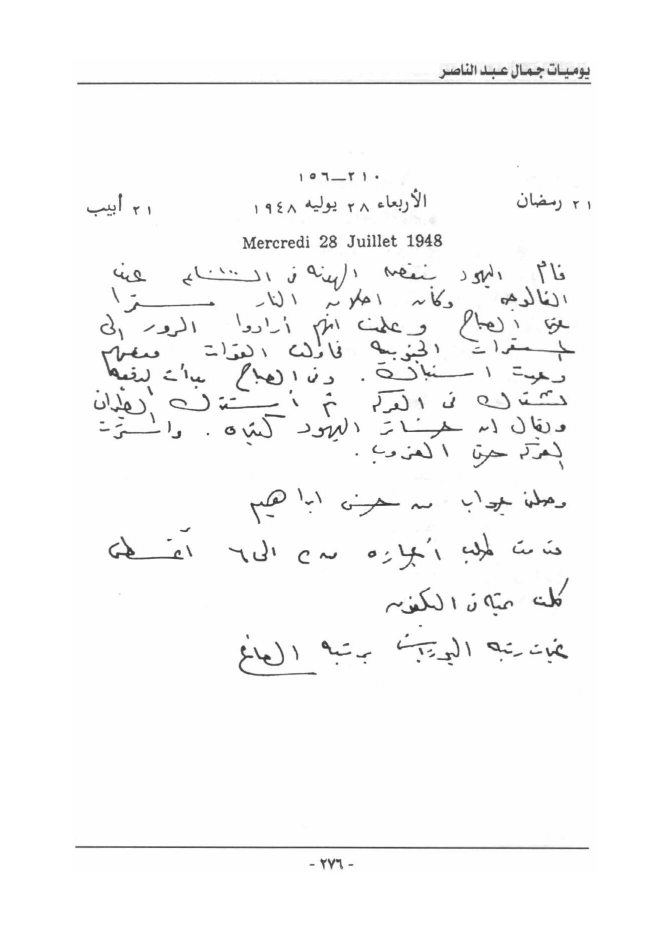 يوميات جمال عبد الناصر
٢١٠ــ١٥٦
٢١ رمضان الأربعاء ٢٨ يوليه ١٩٤٨ ٢١ أبيب
Mercredi 28 Juillet 1948
قام اليهود بنقض الهدنة فى عند
الفالوجه وكان اطلاق النار مستمرا
حتى الصباح وعلمت انهم أرادوا المرور الى
المستعمرات الجنوبيه فحاولت القوات منعهم
وحدث اشتباك. وفى الصباح بدأت المدفعيه
تشترك فى المعركه ثم أشترك الطيران
ويقال ان خسائر اليهود كبيره. واستمرت
المعركه حتى الغروب.
وصلنى جواب من حسن ابراهيم
قدمت طلب أجازه من ٢ الى ٦ أغسطس
كلمت تحيه فى التليفون
رتبه اليوزباشى برتبه الصاغ
- ٢٧٦ -